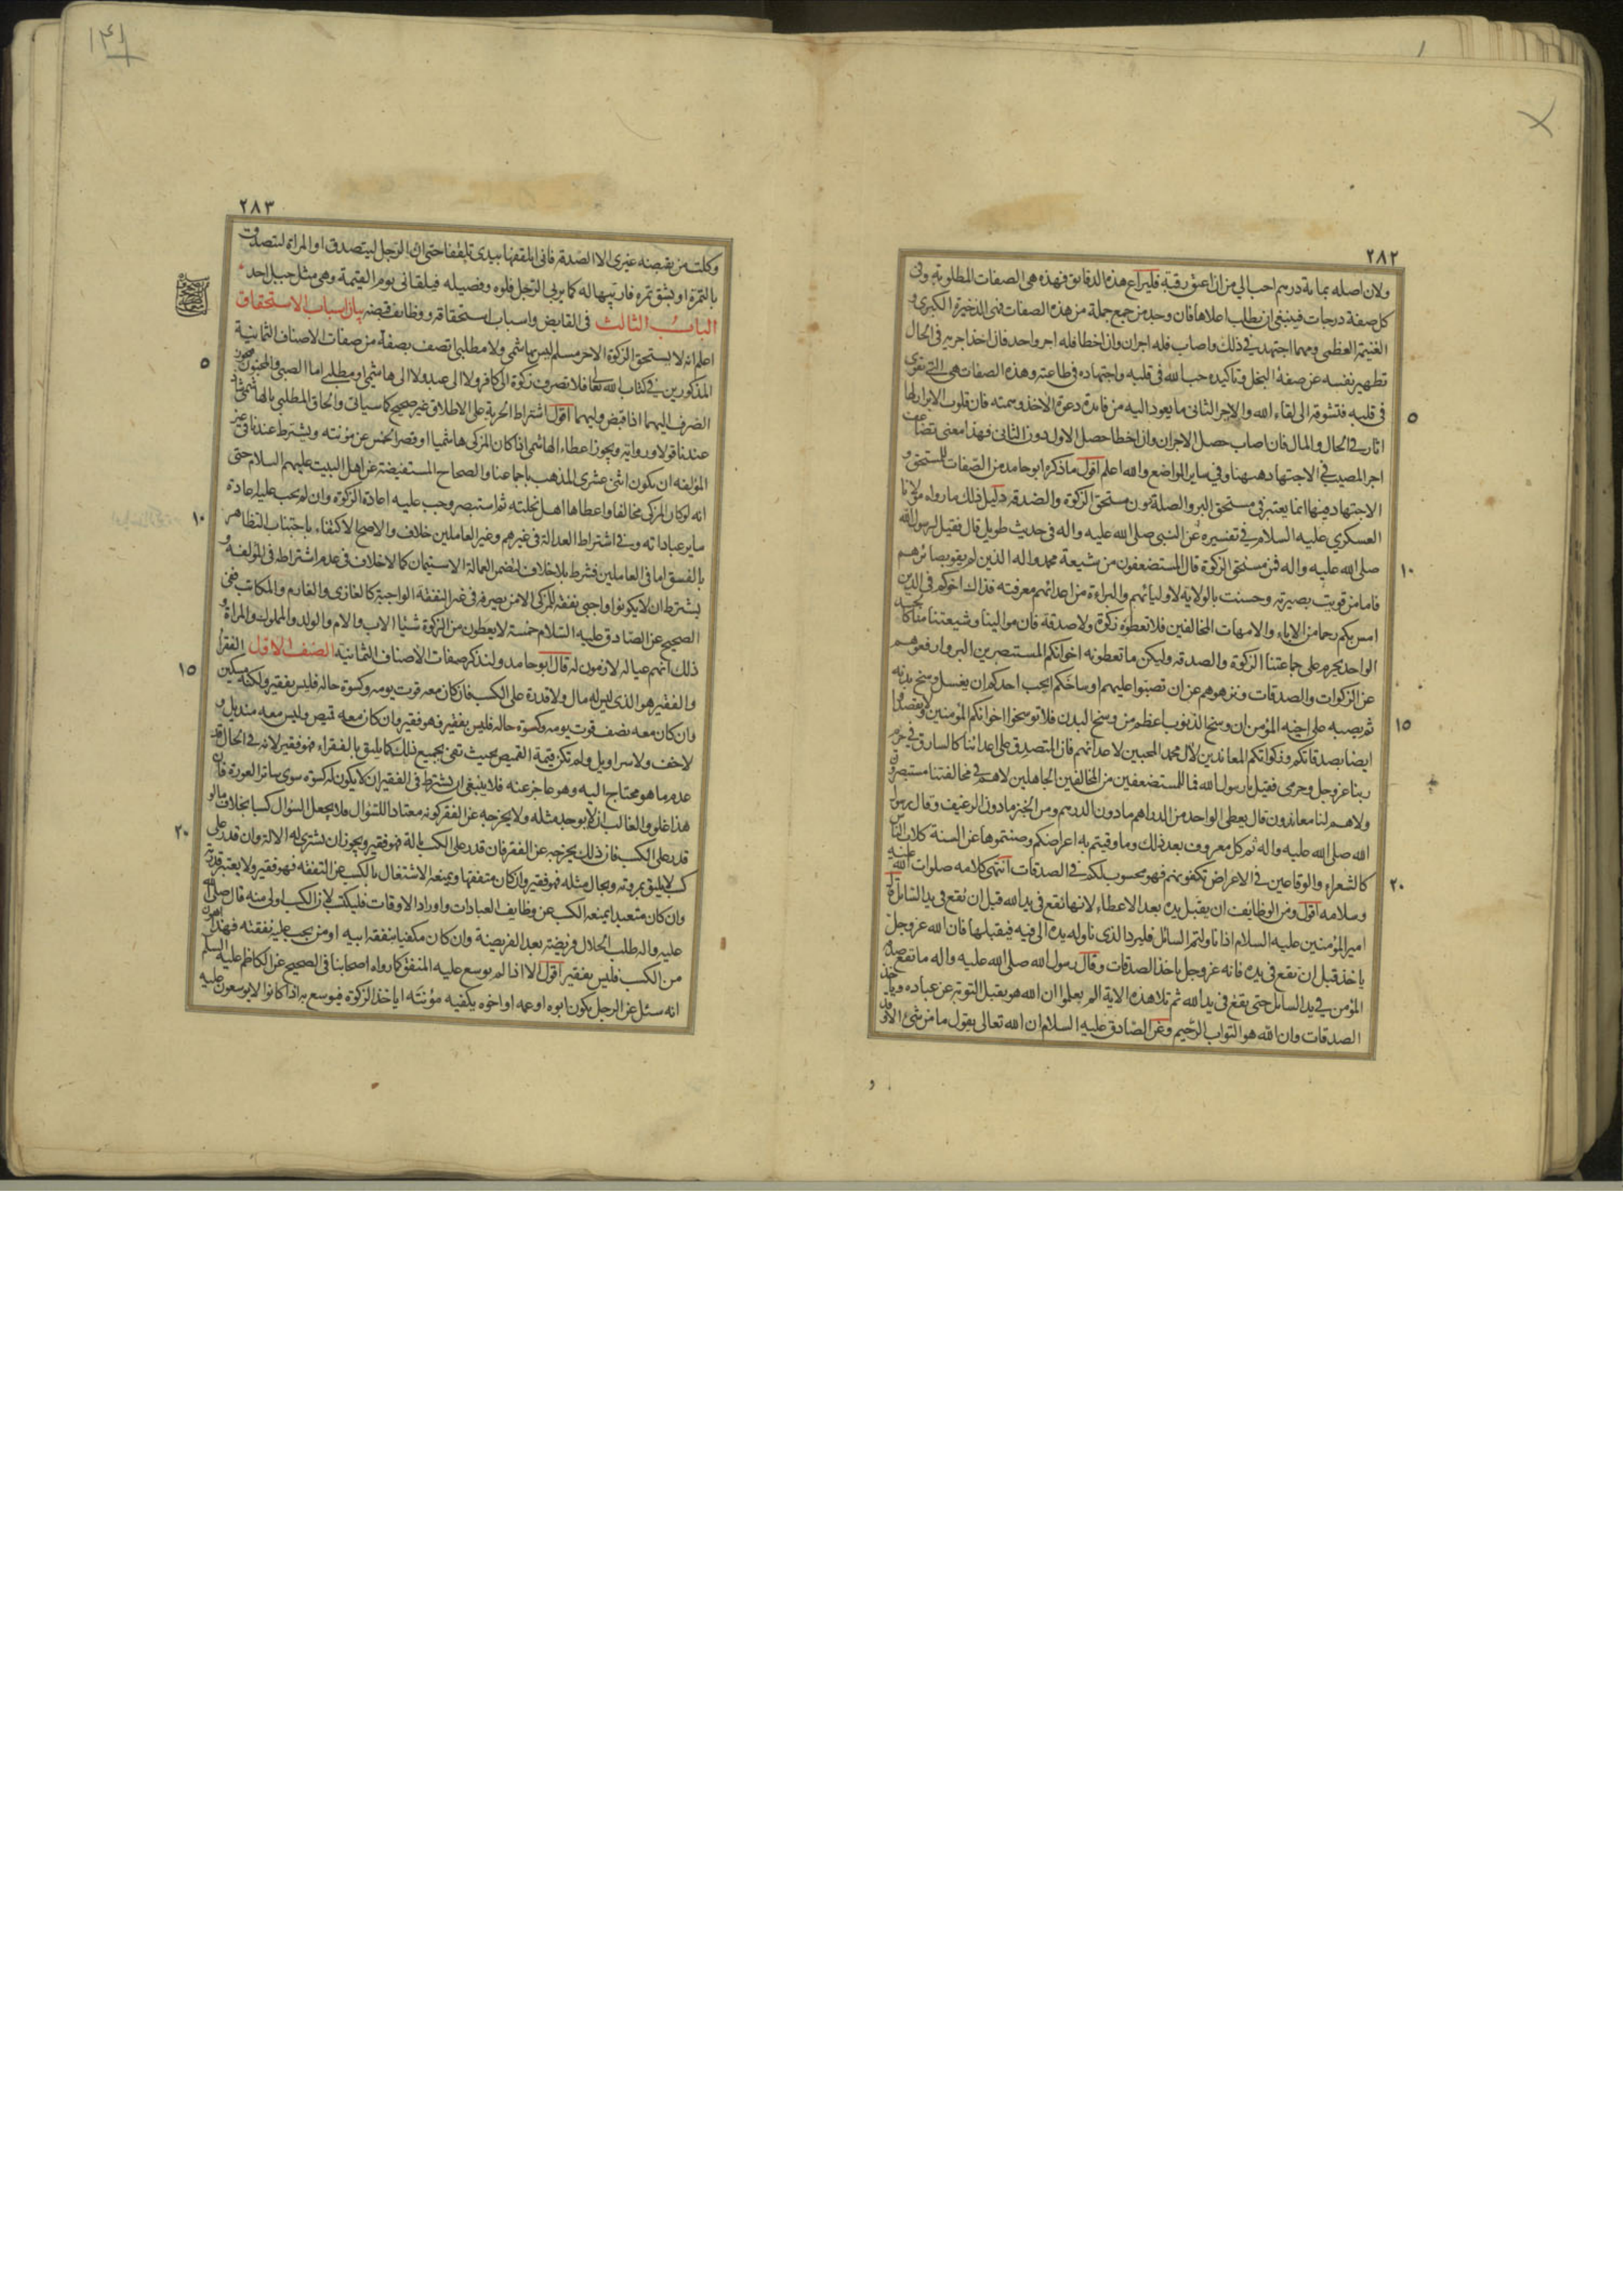 ٢٨٢
ولان اصله بماية درهم احب الي من ان اعتق رقبة فليراع هذه الدقايق فهذه هى الصفات المطلوبة وفى
كل صفة درجات فينبغى ان يطلب اعلاها فان وجد من جمع جملة من هذه الصفات فهى الذخيرة الكبرى و
الغنيمة العظمى ومهما اجتهد فى ذلك واصاب فله اجران وان اخطا فله اجر واحد فان احد اجريه فى الحال
تطهير نفسه عن صفة البخل وتاكيده حب الله فى قلبه واجتهاده فى طاعته وهذه الصفات هى التى تقوى
فى قلبه فتشوقه الى لقاء الله والاجر الثانى ما يعود اليه من فائدة دعوة الاخذ وهمته فان قلوب الابرار لها
اثار فى الحال والمال فان اصاب حصل الاجران وان اخطا حصل الاول دون الثانى فهذا معنى تضاعف
اجر المصيب فى الاجتهاد ههنا وفى ساير المواضع والله اعلم اقول ما ذكره ابو حامد من الصفات للمستحق و
الاجتهاد فيها انما يعتبر فى مستحق البر والصلة دون مستحق الزكوة والصدقة دليل ذلك ما رواه مولانا
العسكرى عليه السلام فى تفسيره عن النبى صلى الله عليه واله فى حديث طويل قال فقيل لرسول الله
صلى الله عليه واله فمن مستحق الزكوة قال المستضعفون من شيعة محمد واله الذين لم يقو بصائرهم
فاما من قويت بصيرته وحسنت بالولاية لاوليائهم والبراءة من اعدائهم معرفته فذاك اخوكم فى الدين
امس بكم رحما من الاباء والامهات المخالفين فلا تعطوه زكوة ولا صدقة فان موالينا وشيعتنا منا كالجسد
الواحد يحرم على جماعتنا الزكوة والصدقة وليكن ما تعطونه اخوانكم المستبصرين البر وارفعوهم
عن الزكوات والصدقات ونزهوهم عن ان تصبوا عليهم اوساخكم ايحب احدكم ان يغسل وسخ بدنه
ثم يصبه على اخيه المؤمن ان وسخ الذنوب اعظم من وسخ البدن فلا توسخوا اخوانكم المؤمنين ولا تقصدوا
ايضا بصدقاتكم وزكواتكم المعاندين لال محمد المحبين لاعدائهم فان المتصدق على اعدائنا كالسارق فى حرم
ربنا عز وجل وحرمى فقيل يا رسول الله فما للمستضعفين من المخالفين الجاهلين لا هم فى مخالفتنا مستبصرون
ولا هم لنا معاندون قال يعطى الواحد من الدراهم ما دون الدرهم ومن الخبز ما دون الرغيف وقال رسول
الله صلى الله عليه واله ثم كل معروف بعد ذلك وما وقيتم به اعراضكم وصنتموها عن السنة كلاب الناس
كالشعراء والوقاعين فى الاعراض تكفونهم فهو محسوب لكم فى الصدقات انتهى كلامه صلوات الله عليه
وسلامه اقول ومن الوظائف ان يقبل يده بعد الاعطاء لانها تقع فى يد الله قبل ان تقع فى يد السائل قال
امير المؤمنين عليه السلام اذا ناولتم السائل فليرد الذى ناوله يده الى فيه فيقبلها فان الله عز وجل
ياخذ قبل ان تقع فى يده فانه عز وجل ياخذ الصدقات وقال رسول الله صلى الله عليه واله ما تقع صدقة
المؤمن فى يد السائل حتى يقع فى يد الله ثم تلا هذه الاية الم يعلموا ان الله هو يقبل التوبة عن عباده وياخذ
الصدقات وان الله هو التواب الرحيم وعن الصادق عليه السلام ان الله تعالى يقول ما من شئ الا وقد
٥
١٠
١٥
٢٠
٢٨٣
وكلت من يقبضه غيرى الا الصدقة فانى اتلقفها بيدى تلقفا حتى ان الرجل ليتصدق او المراة لتتصدق
بالتمرة او بشق تمرة فاربيها له كما يربى الرجل فلوه وفصيله فيلقانى يوم القيمة وهى مثل جبل احد
الباب الثالث فى القابض واسباب استحقاقه ووظائف قبضه بيان اسباب الاستحقاق
اعلم انه لا يستحق الزكوة الا حر مسلم ليس بهاشمى ولا مطلبى اتصف بصفة من صفات الاصناف الثمانية
المذكورين فى كتاب الله تعالى فلا تصرف زكوة الى كافر ولا الى عبد ولا الى هاشمى او مطلبى اما الصبى والمجنون فيجوز
الصرف اليهما اذا قبض وليهما اقول اشتراط الحرية على الاطلاق غير صحيح كما سياتى والحاق المطلبى بالهاشمى شاذ
عندنا قولا ورواية ويجوز اعطاء الهاشمى اذا كان المزكى هاشميا او قصر الخمس عن مؤنته ويشترط عندنا فى غير
المؤلفة ان يكون اثنى عشرى المذهب باجماعنا والصحاح المستفيضة عن اهل البيت عليهم السلام حتى
انه لو كان المزكى مخالفا واعطاها اهل نحلته ثم استبصر وجب عليه اعادة الزكوة وان لم يجب عليه اعادة
ساير عباداته وفى اشتراط العدالة فى غيرهم وغير العاملين خلاف والاصح الاكتفاء باجتناب التظاهر
بالفسق اما فى العاملين فشرط بلا خلاف لتضمن العمالة الاستيمان كما لا خلاف فى عدم اشتراطه فى المؤلفة و
يشترط ان لا يكونوا واجبى نفقة للمزكى الا من يصرفه فى غير النفقة الواجبة كالغازى والغارم والمكاتب ففى
الصحيح عن الصادق عليه السلام خمسة لا يعطون من الزكوة شيئا الاب والام والولد والمملوك والمراة و
ذلك انهم عياله لازمون له قال ابو حامد ولنذكر صفات الاصناف الثمانية الصنف الاول الفقراء
والفقير هو الذى ليس له مال ولا قدرة على الكسب فان كان معه قوت يومه وكسوة حاله فليس بفقير ولكنه مسكين
وان كان معه نصف قوت يومه وكسوة حاله فليس بفقير فهو فقير وان كان معه قميص وليس معه منديل و
لا خف ولا سراويل ولم تكن قيمة القميص بحيث تفى بجميع ذلك كما يليق بالفقراء فهو فقير لانه فى الحال قد
عدم ما هو محتاج اليه وهو عاجز عنه فلا ينبغى ان يشترط فى الفقير ان لا يكون له كسوة سوى ساتر العورة فان
هذا غلو والغالب انه لا يوجد مثله ولا يخرجه عن الفقر كونه معتادا للسؤال فلا يجعل السؤال كسبا بخلاف ما لو
قدر على الكسب فان ذلك يخرجه عن الفقر فان قدر على الكسب بالة فهو فقير ويجوز ان يشترى له الالة وان قدر على
كسب لا يليق بمروته وبحال مثله فهو فقير وان كان متفقها ويمنعه الاشتغال بالكسب عن التفقه فهو فقير ولا يعتبر قدرته
وان كان متعبدا يمنعه الكسب عن وظايف العبادات واوراد الاوقات فليكتسب لان الكسب اولى منه قال صلى الله
عليه واله طلب الحلال فريضة بعد الفريضة وان كان مكفيا بنفقة ابيه او من يجب عليه نفقته فهذا اهون
من الكسب فليس بفقير اقول الا اذا لم يوسع عليه المنفق كما رواه اصحابنا فى الصحيح عن الكاظم عليه السلم
انه سئل عن الرجل يكون ابوه او عمه او اخوه يكفيه مؤنته اياخذ الزكوة فيوسع به اذا كانوا لا يوسعون عليه
٥
١٠
١٥
٢٠